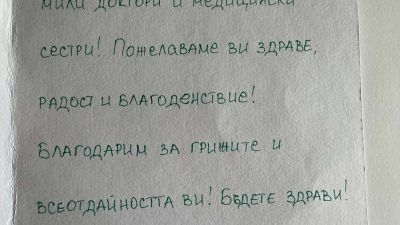 мили доктори и медицински
сестри! Пожелаваме ви здраве,
радост и благоденствие!
Благодарим за грижите и
всеотдайността ви! Бъдете здрави!